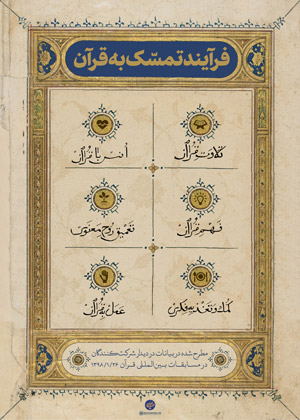 فرآیند تمسّک به قرآن
تلاوت قرآن
انس با قرآن
فهم قرآن
تعمیق روح معنوی
کمک و تغذیه فکری
عمل به قرآن
مطرح شده در بیانات در دیدار شرکت‌کنندگان
در مسابقات بین‌المللی قرآن ۱۳۹۸/۱/۲۶